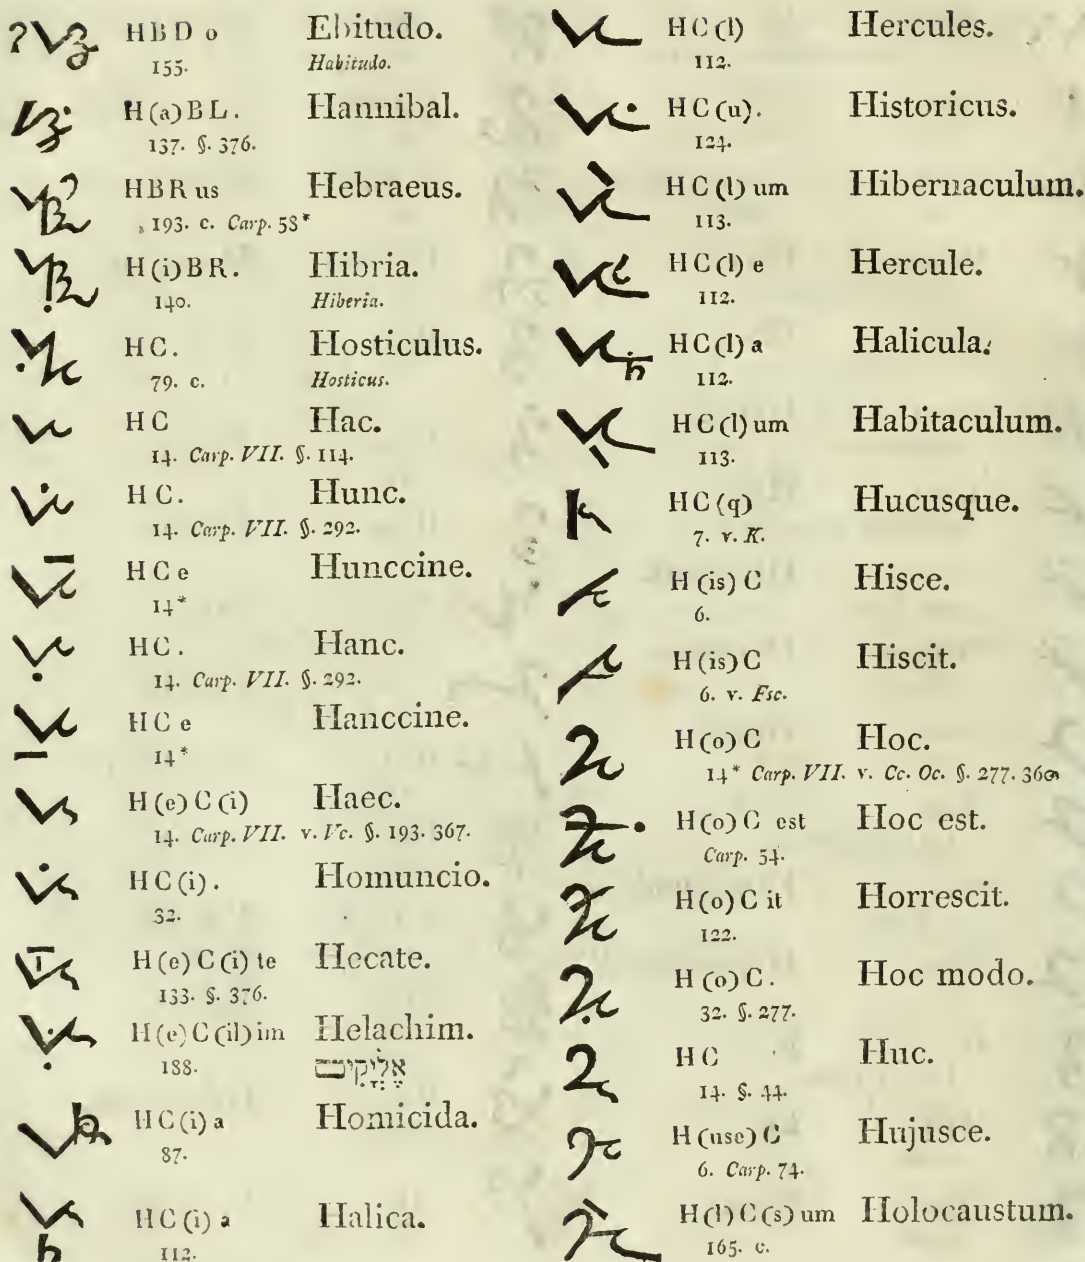 HBD o Ebitudo.
155. Habitudo.
H(a)BL. Hannibal.
137. §. 376.
HBR us Hebraeus.
193. c. Carp. 58*
H(i)BR. Hibria.
140. Hiberia.
HC. Hosticulus.
79. c. Hosticus.
HC Hac.
14. Carp. VII. §. 114.
HC. Hunc.
14. Carp. VII. §. 292.
HC e Hunccine.
14*
HC. Hanc.
14. Carp. VII. §. 292.
HC e Hanccine.
14*
H(e)C(i) Haec.
14. Carp. VII. v. Vc. §. 193. 367.
HC(i). Homuncio.
32.
H(e)C(i) te Hecate.
133. §. 376.
H(e)C(il)im Helachim.
188. אֱלָקִים
HC(i) a Homicida.
87.
HC(i) a Halica.
112.
HC(l) Hercules.
112.
HC(u). Historicus.
124.
HC(l) um Hibernaculum.
113.
HC(l) e Hercule.
112.
HC(l) a Halicula.
112.
HC(l) um Habitaculum.
113.
HC(q) Hucusque.
7. v. K.
H(is)C Hisce.
6.
H(is)C Hiscit.
6. v. Fsc.
H(o)C Hoc.
14* Carp. VII. v. Cc. Oc. §. 277. 360
H(o)C est Hoc est.
Carp. 54.
H(o)C it Horrescit.
122.
H(o)C. Hoc modo.
32. §. 277.
HC Huc.
14. §. 44.
H(use)C Hujusce.
6. Carp. 74.
H(l)C(s)um Holocaustum.
165. c.